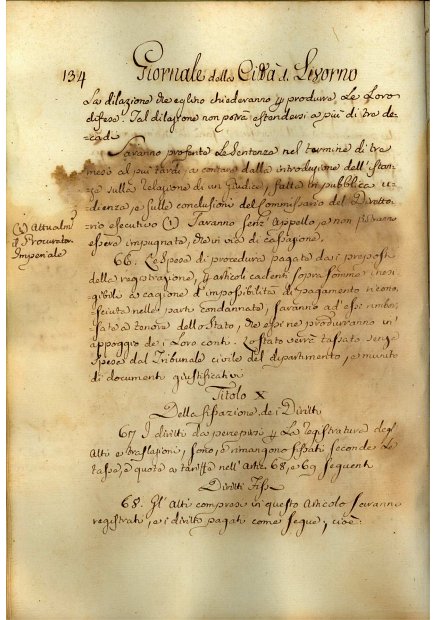 134 Giornale della Città di Livorno
La dilazione che eglino chiederanno per produrre le Loro
difese. Tal dilazione non potrà estendersi a più di tre de-
cadi
Saranno proferite Le Sentenze nel termine di tre
mesi al più tardi, a contare dalla introduzione dell'istan-
za sulla relazione di un Giudice, fatta in pubblica u-
dienza, e sulle conclusioni del Commissario del Diretto-
rio esecutivo (1) Saranno senz'Appello, e non potranno
essere impugnate, che in via di cassazione.
(1) Attualmte
il Procurator
Imperiale
66. Le spese di procedura pagate dai preposti
della registrazione, per articoli cadenti sopra somme inesi-
gibile a cagione d'impossibilità di pagamento ricono-
sciuta nelle parti condannate, saranno ad essi rimbor-
sate a tenore dello Stato, che essi ne produrranno in
appoggio dei Loro conti. Lo stato verrà tassato senza
spese dal Tribunale civile del dipartimento, e munito
di documenti giustificativi
Titolo X
Della fissazione dei Diritti
67 I diritti da percepirsi per La registratura degl'
Atti e traslazioni, sono, e rimangono fissati secondo Le
tasse, e quote a tariffa nell'Artic. 68, e 69 seguenti
Diritti Fissi
68. Gl'Atti compresi in questo Articolo saranno
registrati, e i diritti pagati come segue, cioè: